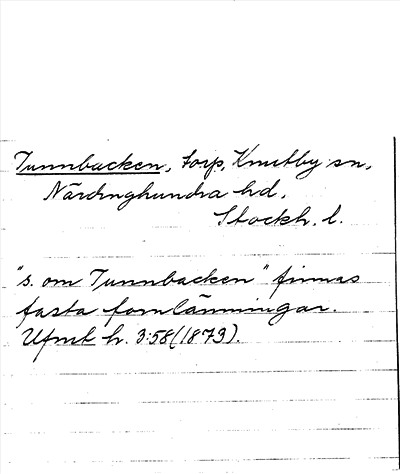 Tunnbacken, torp, Knutby sn,
Närdinghundra hd,
Stockh. l.
"s. om Tunnbacken" finnas
fasta fornlämningar.
Ufmt h. 3:58 (1873).